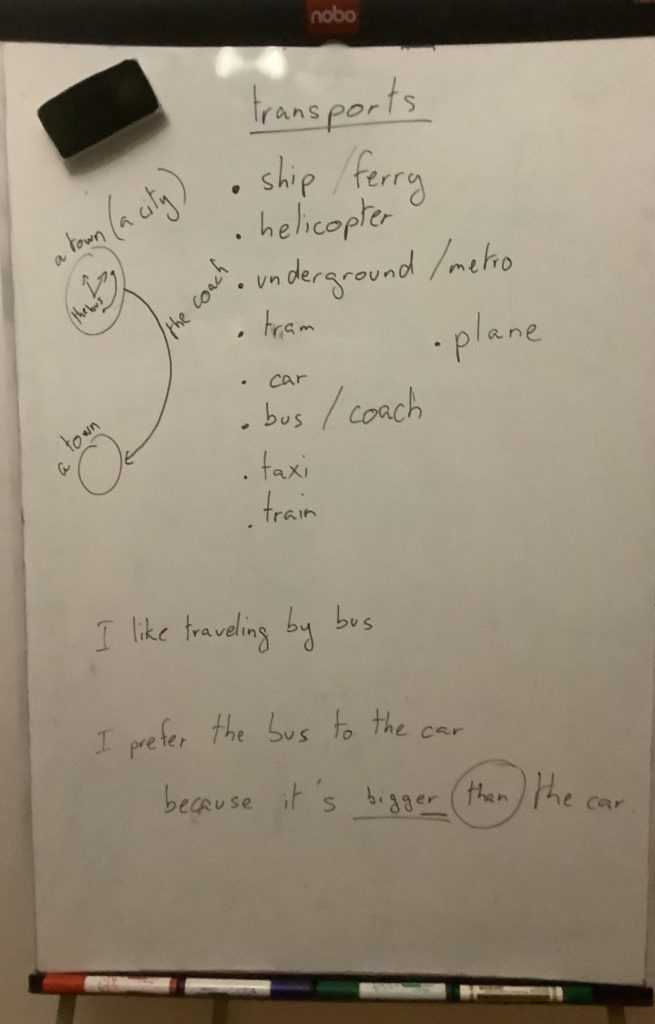 nobo
transports
• ship / ferry
• helicopter
• underground / metro
• tram
• plane
• car
• bus / coach
• taxi
• train
a town (a city)
the bus
the coach
a town
I like traveling by bus
I prefer the bus to the car
because it's bigger than the car